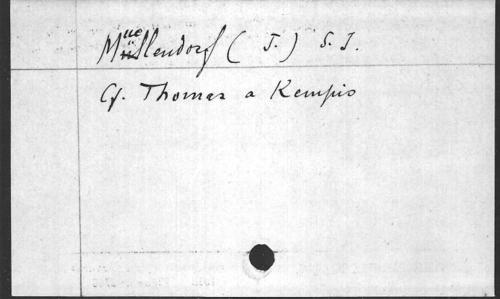 Muellendorf ( J. ) S. J.
Cf. Thomas a Kempis